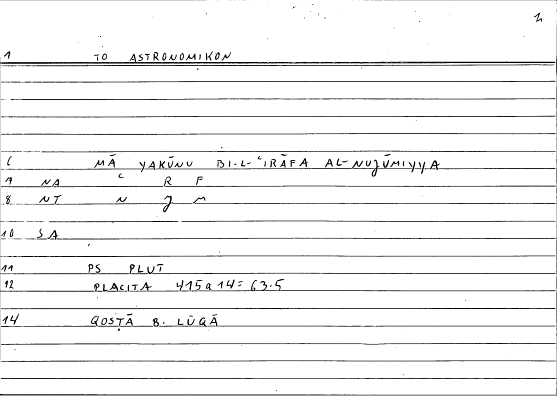 2
1 TO ASTRONOMIKON
6 MĀ YAKŪNU BI-L-ʿIRĀFA AL-NUJŪMIYYA
7 NA ʿ R F
8 NT N J M
10 SA
11 PS PLUT
12 PLACITA 415a14 = 63.5
14 QOSṬĀ B. LŪQĀ